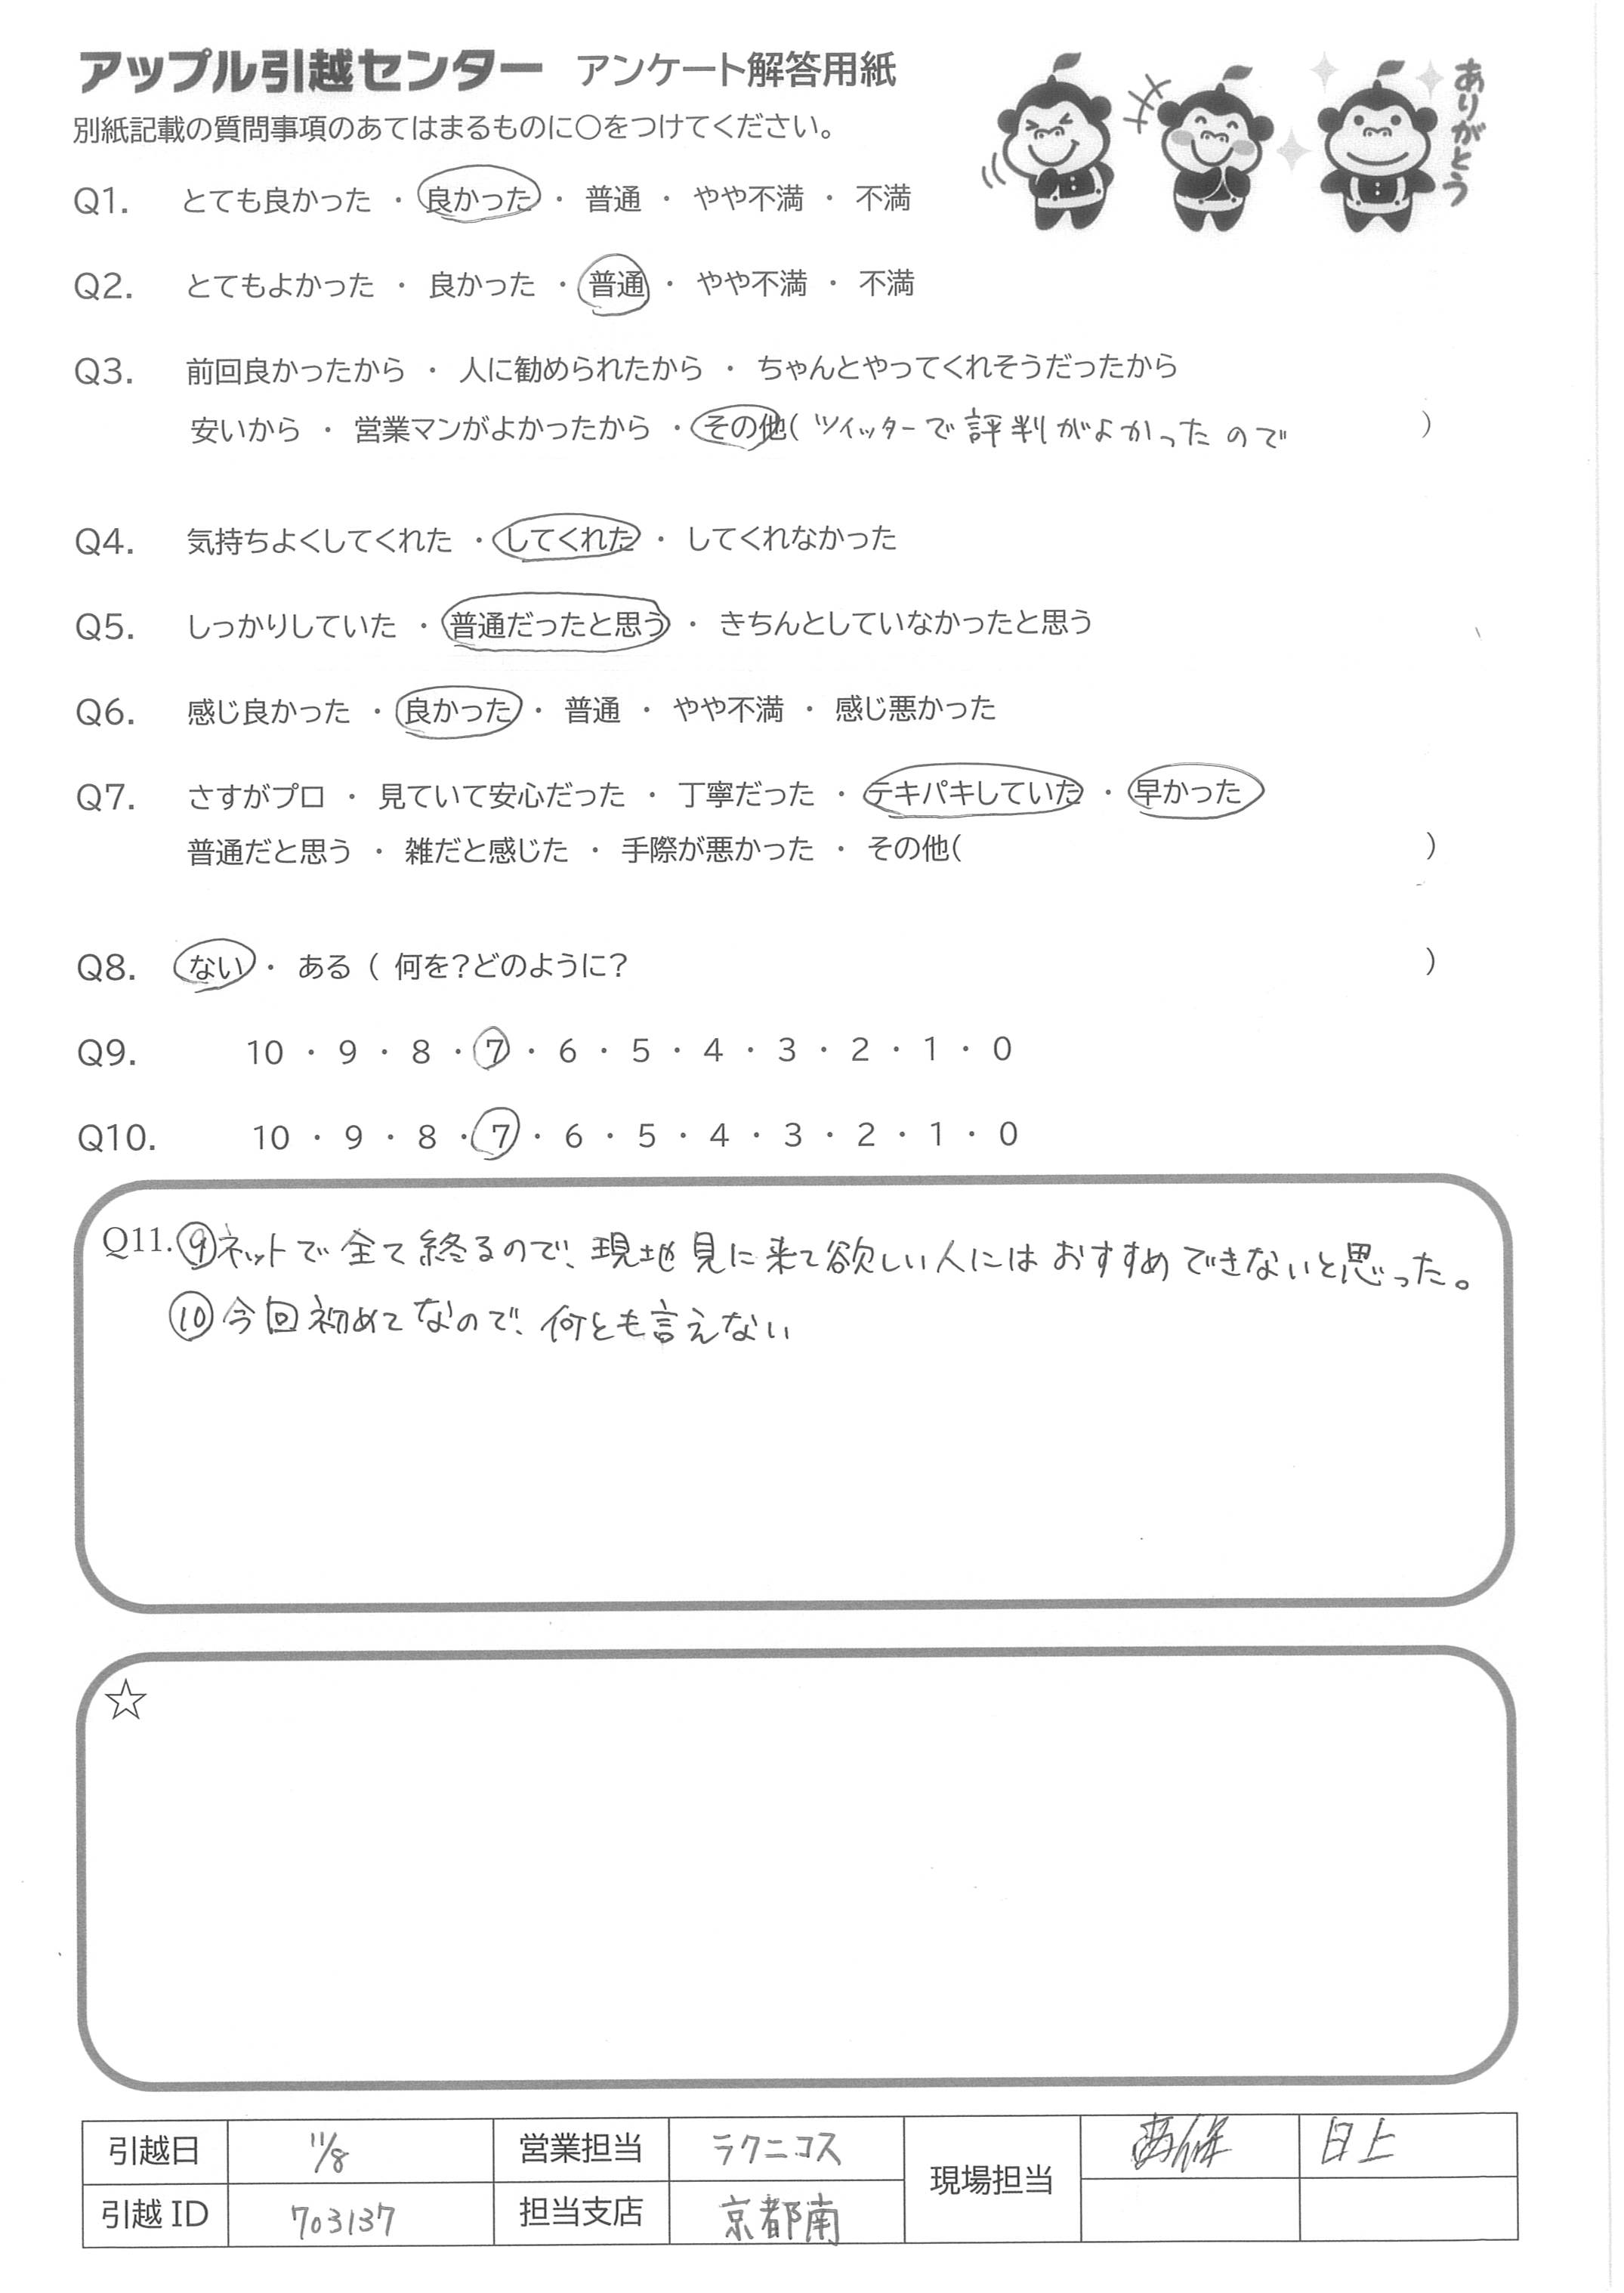 アップル引越センター アンケート解答用紙
別紙記載の質問事項のあてはまるものに○をつけてください。
ありがとう
Q1. とても良かった ・ 良かった ・ 普通 ・ やや不満 ・ 不満
Q2. とてもよかった ・ 良かった ・ 普通 ・ やや不満 ・ 不満
Q3. 前回良かったから ・ 人に勧められたから ・ ちゃんとやってくれそうだったから
安いから ・ 営業マンがよかったから ・ その他( ツイッターで評判がよかったので )
Q4. 気持ちよくしてくれた ・ してくれた ・ してくれなかった
Q5. しっかりしていた ・ 普通だったと思う ・ きちんとしていなかったと思う
Q6. 感じ良かった ・ 良かった ・ 普通 ・ やや不満 ・ 感じ悪かった
Q7. さすがプロ ・ 見ていて安心だった ・ 丁寧だった ・ テキパキしていた ・ 早かった
普通だと思う ・ 雑だと感じた ・ 手際が悪かった ・ その他( )
Q8. ない ・ ある ( 何を?どのように? )
Q9. 10 ・ 9 ・ 8 ・ 7 ・ 6 ・ 5 ・ 4 ・ 3 ・ 2 ・ 1 ・ 0
Q10. 10 ・ 9 ・ 8 ・ 7 ・ 6 ・ 5 ・ 4 ・ 3 ・ 2 ・ 1 ・ 0
Q11. ⑨ネットで全て終るので、現地見に来て欲しい人にはおすすめできないと思った。
⑩今回初めてなので、何とも言えない
☆
引越日 11/8 営業担当 ラクニコス 現場担当 日上
引越ID 703137 担当支店 京都南